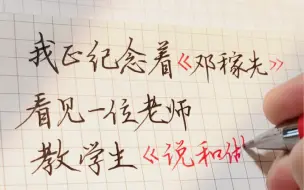 我正纪念着《邓稼先》
看见一位老师
教学生《说和做